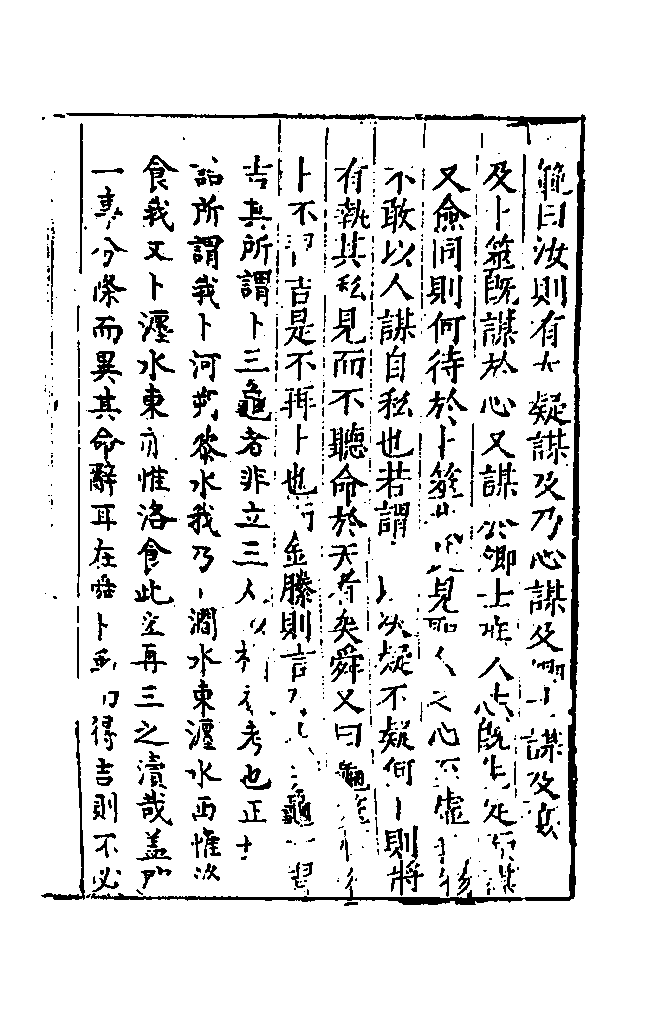 範曰汝則有大疑謀及乃心謀及卿士謀及庶
及卜筮既謀於心又謀於卿士庶人志既先定謀
又僉同則何待於卜筮見聖人之心至虛
不敢以人謀自私也若謂卜以決疑不疑何卜則將
有執其私見而不聽命於天者矣舜又曰龜筮
卜不習吉是不再卜也金縢則言三龜一習
吉其所謂卜三龜者非立三人以相參考也正
誥所謂我卜河朔黎水我乃卜澗水東瀍水西惟洛
食我又卜瀍水東亦惟洛食此豈再三之瀆哉蓋
一事分條而異其命辭耳在舜卜得吉則不必